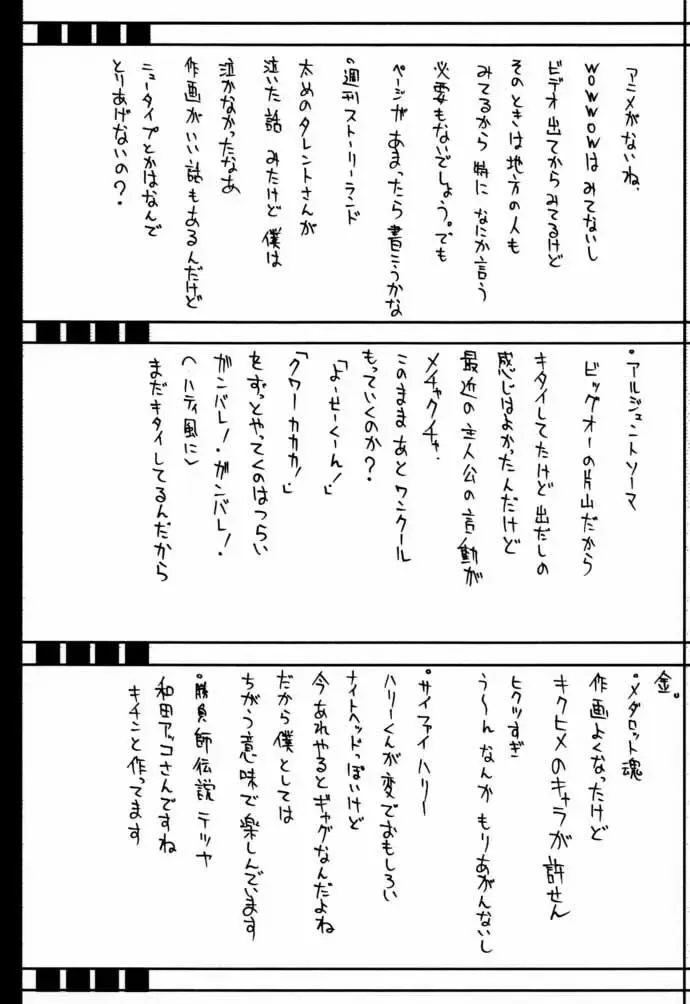 アニメがないね、
WOWWOWは みてないし
ビデオ出てからみてるけど
そのときは地方の人も
みてるから 特に なにか言う
必要もないでしょう。でも
ページが あまったら書こうかな
・週刊ストーリーランド
太めのタレントさんが
泣いた話 みたけど 僕は
泣かなかったなあ
作画がいい話もあるんだけど
ニュータイプとかはなんで
とりあげないの？
・アルジェントソーマ
ビッグオーの片山だから
キタイしてたけど 出だしの
感じはよかったんだけど
最近の主人公の言動が
メチャクチャ．
このまま あと ワンクール
もっていくのか？
「よーせーくーん！」
「クワーカカカ！」
をずっとやってくのはつらい
ガンバレ！・ガンバレ！
（ハティ風に）
まだキタイしてるんだから
金。
・メダロット魂
作画よくなったけど
キクヒメのキャラが 許せん
ヒクツすぎ
う〜ん なんか もりあがんないし
・サイファイ ハリー
ハリーくんが変でおもしろい
ナイトヘッドっぽいけど
今あれやるとギャグなんだよね
だから僕としては
ちがう意味で楽しんでいます
・勝負師伝説 テツヤ
和田アッコさんですね
キチンと作ってます